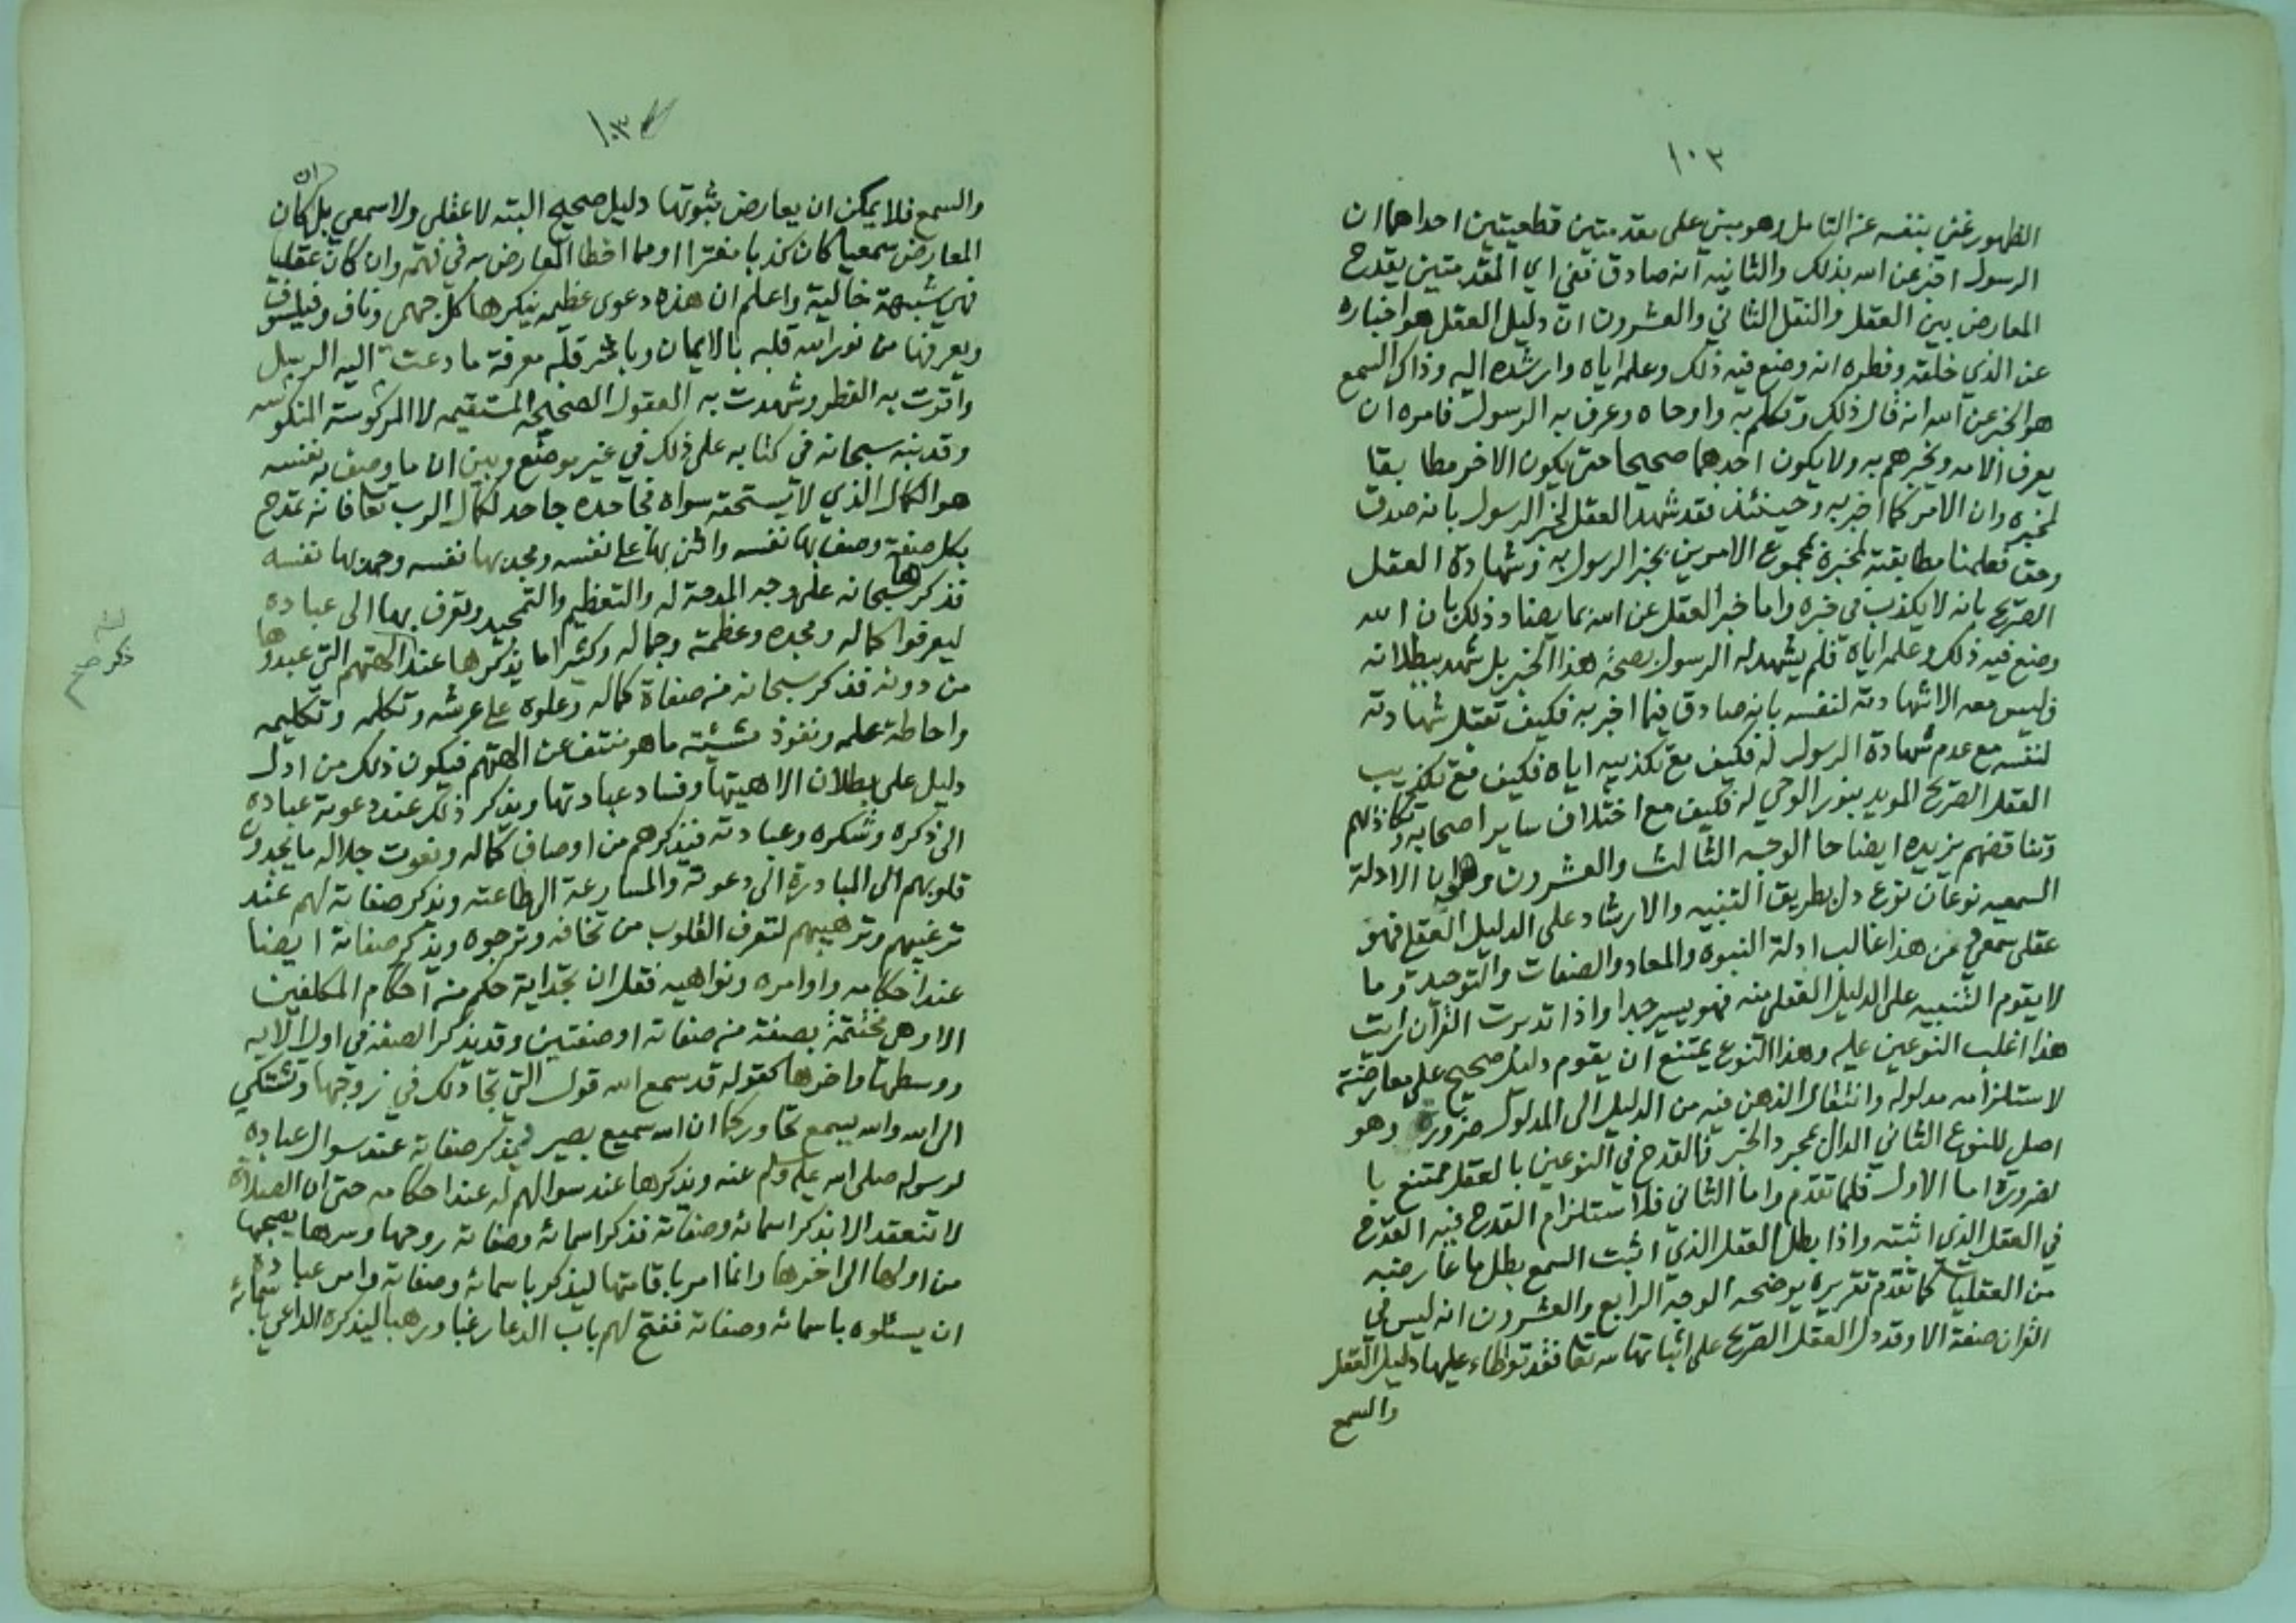 ١٠٣
الظهور غني بنفسه عن التامل وهو مبني على مقدمتين قطعيتين احداهما ان
الرسول اخبر عن الله بذلك والثانيه انه صادق ففي اي المقدمتين يقدح
المعارض بين العقل والنقل الثاني والعشرون ان دليل العقل هو اخباره
عن الذي خلقه وفطره انه وضع فيه ذلك وعلمه اياه وارشده اليه وذاك السمع
هو الخبر عن الله انه قال ذلك وتكلم به واوحاه وعرف به الرسول فامره ان
يعرف الامه ويخبرهم به ولا يكون احدهما صحيحا حتى يكون الاخر مطابقا
لمخبره وان الامر كما اخبر به وحينئذ فقد شهد العقل لخبر الرسول بانه صدق
وحق فعلمنا مطابقته لمخبره بمجموع الامرين بخبر الرسول به وشهادة العقل
الصريح بانه لا يكذب في خبره واما خبر العقل عن الله بما يضاد ذلك بان الله
وضع فيه ذلك وعلمه اياه فلم يشهد له الرسول بصحة هذا الخبر بل شهد ببطلانه
وليس معه الا شهادته لنفسه بانه صادق فيما اخبر به فكيف تقبل شهادته
لنفسه مع عدم شهادة الرسول له فكيف مع تكذيبه اياه فكيف مع تكذيب
العقل الصريح المويد بنور الوحي له فكيف مع اختلاف ساير اصحابه وتكاذبهم
وتناقضهم يزيده ايضاحا الوجه الثالث والعشرون وهو ان الادلة
السمعيه نوعان نوع دل بطريق التنبيه والارشاد على الدليل العقلي فهو
عقلي سمعي فمن هذا غالب ادلة النبوه والمعاد والصفات والتوحيد وما
لا يقوم التنبيه على الدليل العقلي منه فهو يسير جدا واذا تدبرت القرآن رايت
هذا اغلب النوعين عليه وهذا النوع يمتنع ان يقوم دليل صحيح على معارضته
لاستلزامه مدلوله وانتقال الذهن فيه من الدليل الى المدلول ضروري وهو
اصل للنوع الثاني الدال بمجرد الخبر فالقدح في النوعين بالعقل ممتنع با
لضرورة اما الاول فلما تقدم واما الثاني فلاستلزام القدح فيه القدح
في العقل الذي اثبته واذا بطل العقل الذي اثبت السمع بطل ما عارضه
من العقليات كما تقدم تقريره يوضحه الوجه الرابع والعشرون انه ليس في
القران صفة الا وقد دل العقل الصريح على اثباتها لله تعا فقد تواطاء عليها دليل العقل
والسمع
والسمع فلا يمكن ان يعارض ثبوتها دليل صحيح البته لا عقلي ولا سمعي بل ان كان
المعارض سمعيا كان كذبا مفترا او مما اخطا المعارض به في فهمه وان كان عقليا
فهي شبهة خاليه واعلم ان هذه دعوى عظيمه ينكرها كل جهمي وناف وفيلسوف
ويعرفها من نور الله قلبه بالايمان وباشر قلبه معرفة ما دعت اليه الرسل
واقرت به الفطر وشهدت به العقول الصحيحه المستقيمه لا المركوسة المنكوسه
وقد نبه سبحانه في كتابه على ذلك في غير موضع وبين ان ما وصف به نفسه
هو الكمال الذي لا يستحقه سواه فجاحده جاحد لكمال الرب تعا فانه تمدح
بكل صفة وصف بها نفسه واثنى بها على نفسه ومجد بها نفسه وحمد بها نفسه
فذكرها سبحانه على وجه المدحة له والتعظيم والتمجيد وتعرف بها الى عباده
ليعرفوا كماله ومجده وعظمته وجماله وكثيرا ما يذكرها عند الهتهم التي عبدوها
من دونه فذكر سبحانه من صفاة كماله وعلوه على عرشه وتكلمه وتكليمه
واحاطة علمه ونفوذ مشيئته ما هو منتف عن الهتهم فيكون ذلك من ادل
دليل على بطلان الاهيتها وفساد عبادتها ويذكر ذلك عند دعوته عباده
الى ذكره وشكره وعبادته فيذكرهم من اوصاف كماله ونعوت جلاله ما يجذب
قلوبهم الى المبادرة الى دعوته والمسارعة الى طاعته ويذكر صفاته لهم عند
ترغيبهم وترهيبهم لتعرف القلوب من تخافه وترجوه ويذكر صفاته ايضا
عند احكامه واوامره ونواهيه فقل ان تجد اية حكم من احكام المكلفين
الا وهي مختتمة بصفة من صفاته او صفتين وقد يذكر الصفة في اول الايه
ووسطها واخرها كقوله قد سمع الله قول التي تجادلك في زوجها وتشتكي
الى الله والله يسمع تحاوركما ان الله سميع بصير فيذكر صفاته عند سوال عباده
لرسوله صلى الله عليه وسلم عنه ويذكرها عند سوالهم له عند احكامه حتى ان الصلاة
لا تنعقد الا بذكر اسمائه وصفاته فذكر اسمائه وصفاته روحها وسرها يصحبها
من اولها الى اخرها وانما امر باقامتها ليذكر باسمائه وصفاته وامر عباده
ان يسئلوه باسمائه وصفاته ففتح لهم باب الدعا رغبا ورهبا ليذكره الداعي باسمائه